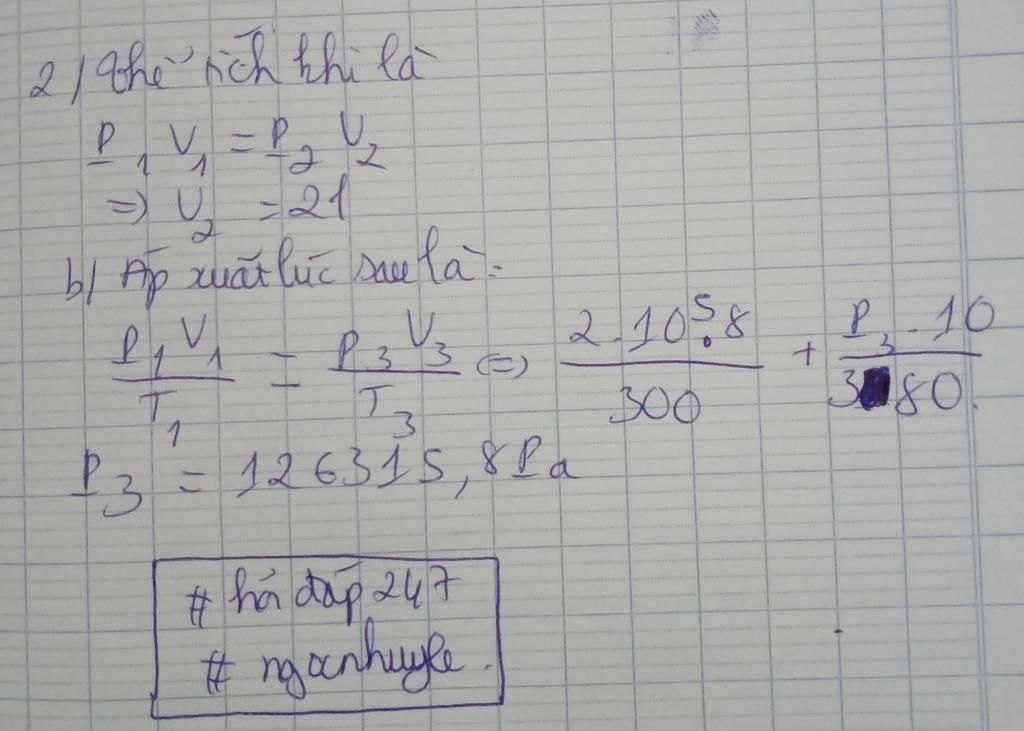 2) thể tích khí là
P₁ V₁ = P₂ V₂
=> V₂ = 2l
b) Áp xuất lúc sau là:
P₁V₁/T₁ = P₃V₃/T₃ <=> 2.10⁵.8/300 + P₃.10/380.
P₃ = 126315,8Pa
# hỏi đáp 247
# ngocnhuyle.